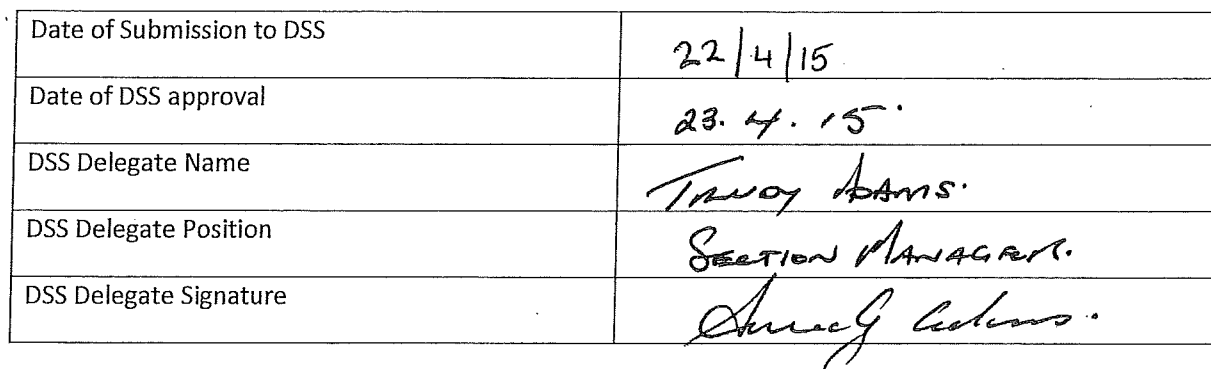 Date of Submission to DSS 22/4/15
Date of DSS approval 23.4.15
DSS Delegate Name TRUDY ADAMS.
DSS Delegate Position SECTION MANAGER.
DSS Delegate Signature Adams.